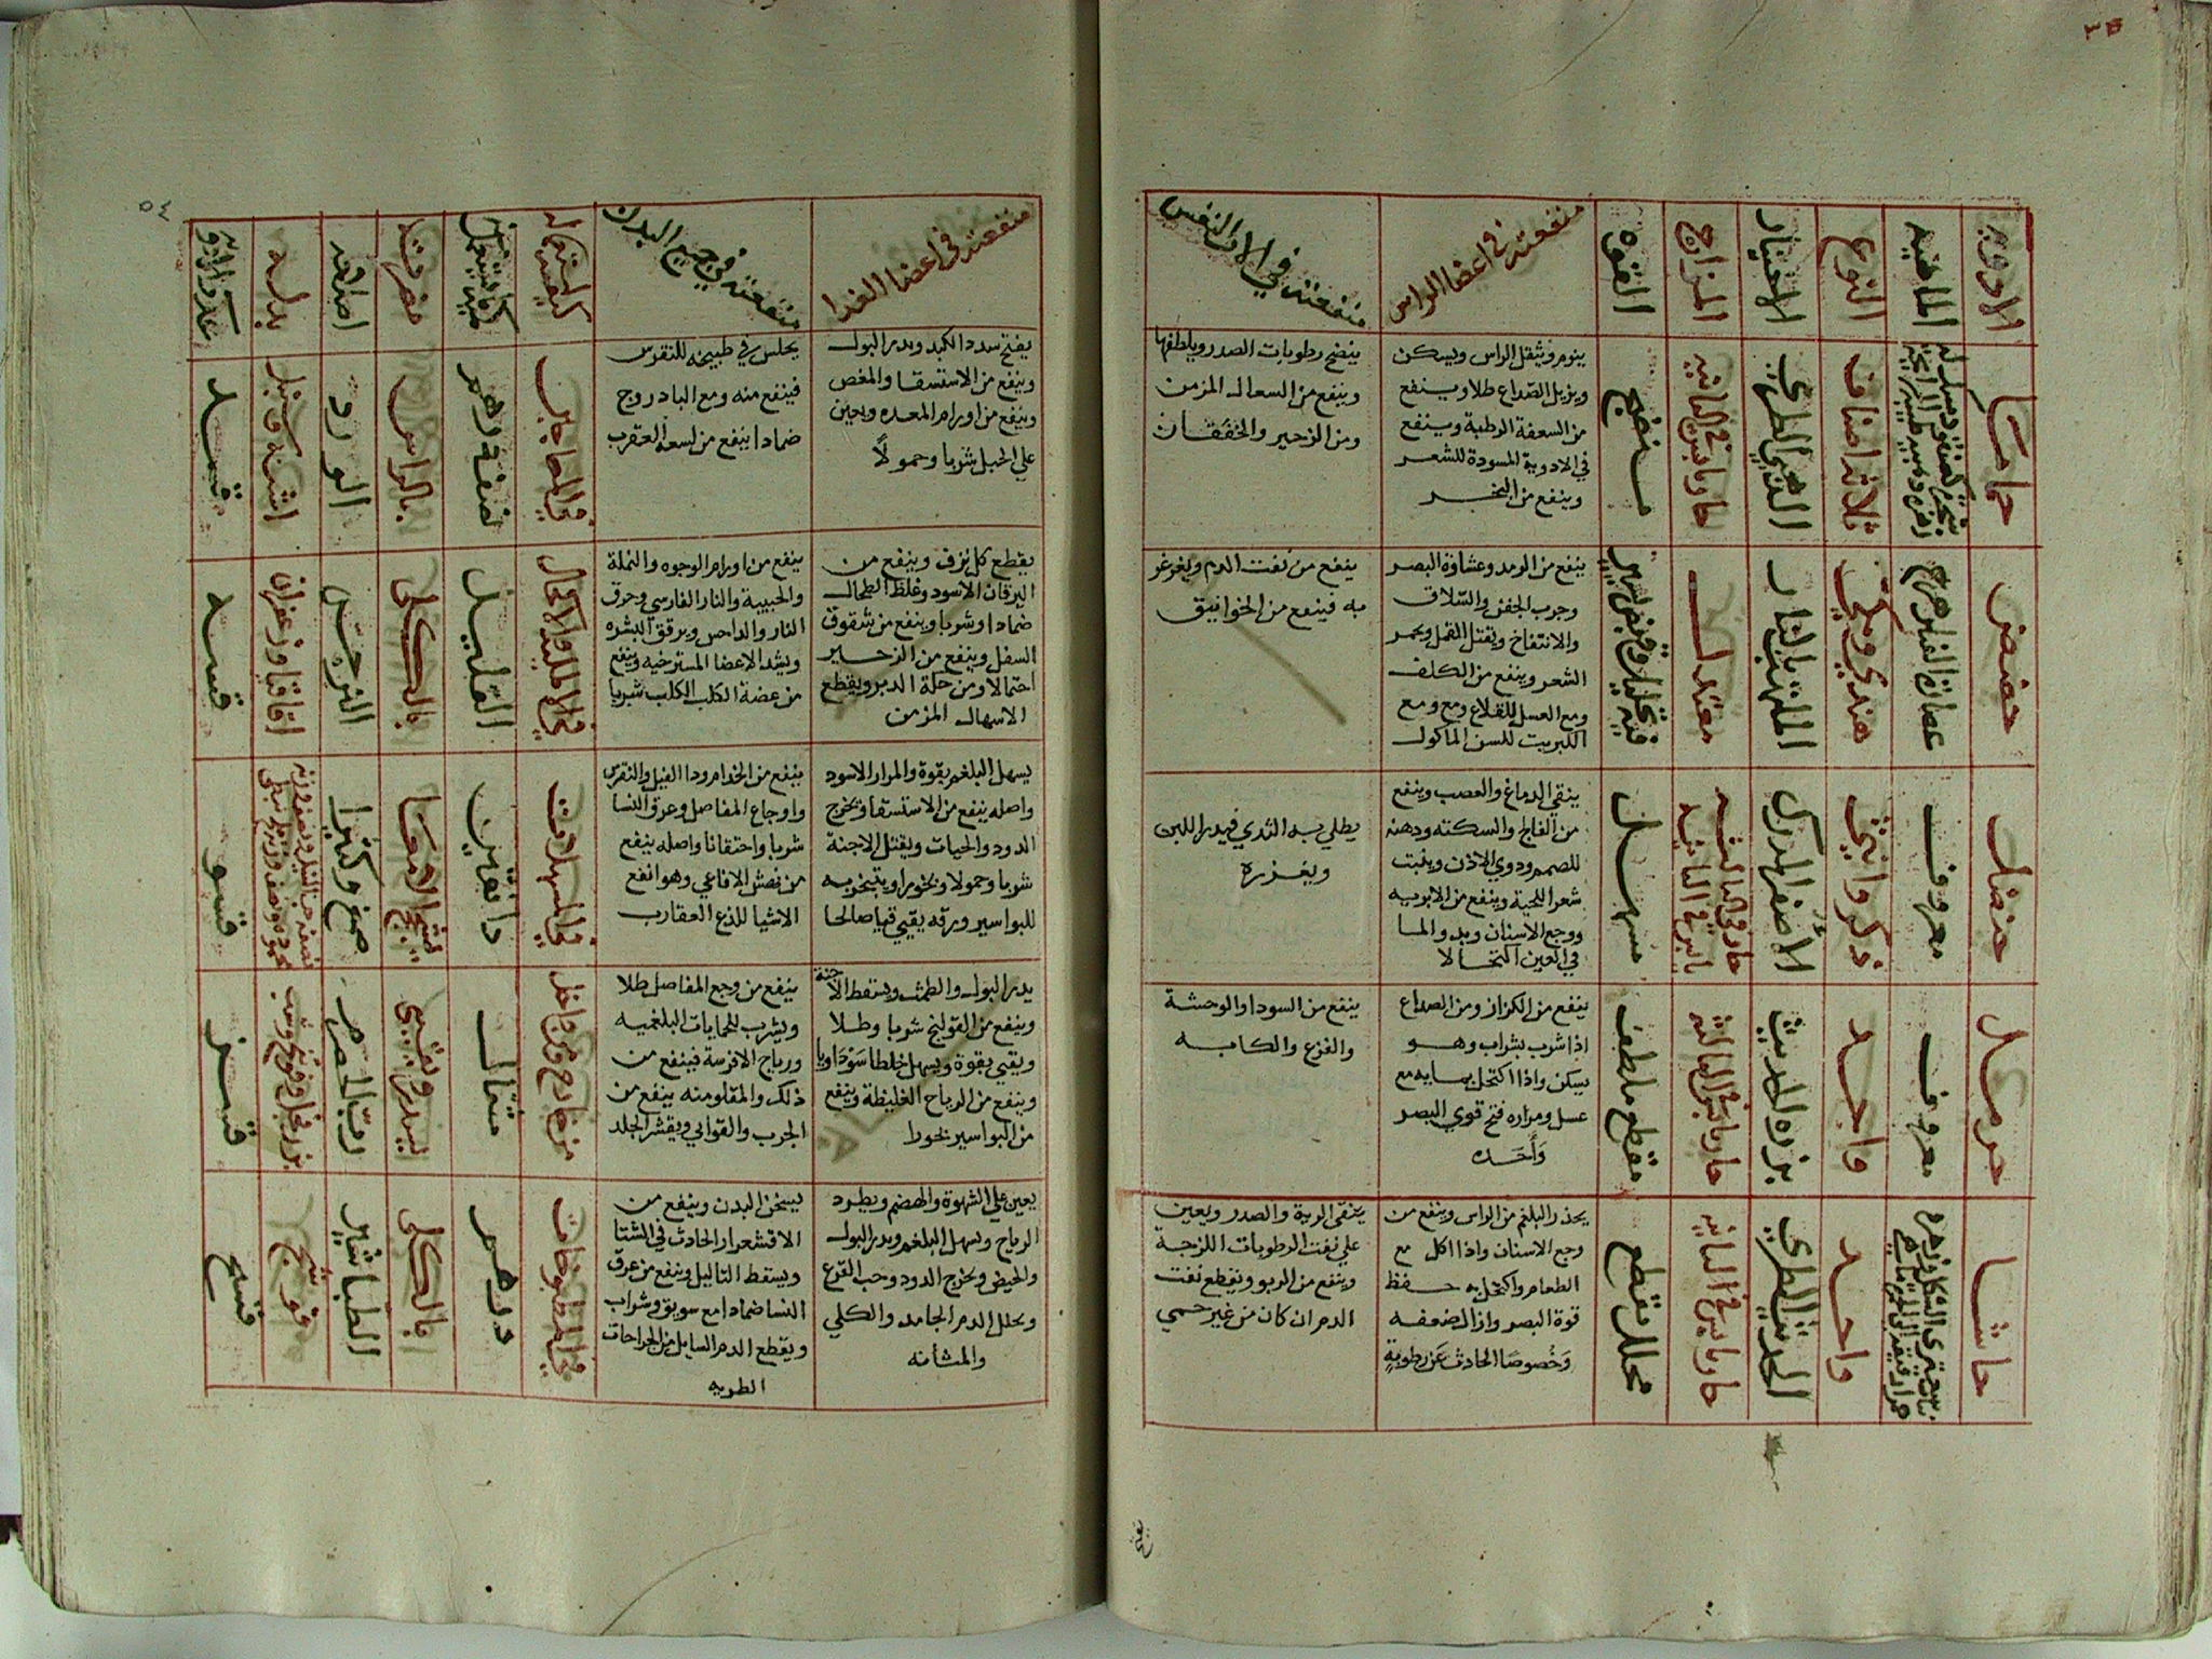 الادويه
الماهيه
النوع
الاختيار
المزاج
القوه
منفعته في اعضا الراس
منفعته في الات النفس
حاما
ثلاثه اصناف
الذهبي الطري
حار يابس في الثانيه
منضج
ينوم ويثقل الراس ويسكن
ويزيل الصداع طلا وينفع
من السعفة الرطبة وينفع
في الادوية المسودة للشعر
وينفع من البخر
ينضج رطوبات الصدر ويلطفها
وينفع من السعال المزمن
ومن الزحير والخفقان
حضض
عصارة الفيلزهرج
هندي ومكي
الملتهب بالنار
معتدل
فيه تحليل وقبض يسير
ينفع من الرمد وغشاوة البصر
وجرب الجفن والسلاق
والانتفاخ ويقتل القمل ويحمر
الشعر وينفع من الكلف
ومع العسل للقلاع ومع
الكبريت للسن الماكول
ينفع من نفث الدم ويغرغر
به فينفع من الخوانيق
حنضل
معروف
ذكر وانثى
الاصفر المدرك
حار في الثالثه
يابس في الثانيه
مسهل
ينقي الدماغ والعصب وينفع
من الفالج والسكته ودهنه
للصمم ودوي الاذن وينبت
شعر اللحية وينفع من الابريه
ووجع الاسنان وبدو الما
في العين اكتحالا
يطلي به الثدي فيدر اللبن
ويغزره
حرمل
معروف
واحد
بزره الحديث
حار يابس في الثالثة
مقطع ملطف
ينفع من الكزاز ومن الصداع
اذا شرب بشراب وهو
يسكن واذا اكتحل بمايه مع
عسل ومراره فتح قوي البصر
وأحده
ينفع من السودا والوحشة
والفزع والكابه
حاشا
واحد
الحديث الطري
حار يابس في الثانيه
محلل مقطع
يحذر البلغم من الراس وينفع من
وجع الاسنان واذا اكل مع
الطعام واكتحل به حفظ
قوة البصر وازال ضعفه
وخصوصا الحادث عن رطوبة
ينقي الرية والصدر ويعين
علي نفث الرطوبات اللزجة
وينفع من الربو ويقطع نفث
الدم ان كان من غير حمي
٥٤
منفعته في اعضا الغدا
منفعته في جميع البدن
كيفية استعماله
كمية ما يستعمل
مضرته
اصلاحه
بدله
عدد الادويه
يفتح سدد الكبد ويدر البول
وينفع من الاستسقا والمغص
وينفع من اورام المعده ويعين
علي الحبل شربا وحمولا
يجلس في طبيخه للنقرس
فينفع منه ومع البادروج
ضمادا ينفع من لسعة العقرب
في المعاجين
نصف درهم
بالراس
الورد
اشنه وسنبل
يقطع كل نزف وينفع من
اليرقان الاسود وغلظ الطحال
ضمادا وشربا وينفع من شقوق
السفل وينفع من الزحير
احتمالا ومن حلة الدبر ويقطع
الاسهال المزمن
ينفع من اورام الوجوه والنملة
والخبيثة والنار الفارسي وحرق
النار والداحس ويرقق البشره
ويشد الاعضا المسترخيه وينفع
من عضة الكلب الكلب شربا
القليل
بالكلي
النرجس
اقاقيا وزعفران
يسهل البلغم بقوة والمرار الاسود
واصله ينفع من الاستسقا ويخرج
الدود والحيات ويقتل الاجنة
شربا وحمولا وبخورا ويتبخر به
للبواسير وورقه يقيي قيا صالحا
ينفع من الجذام ودا الفيل والنقرس
واوجاع المفاصل وعرق النسا
شربا واحتقانا واصله ينفع
من نهش الافاعي وهو انفع
الاشيا للذع العقارب
في المسهلات
دانقين
يسحج الامعا
صمغ وكثيرا
يدر البول والطمث ويسقط الاجنة
وينفع من القولنج شربا وطلا
ويقيي بقوة ويسهل خلطا سوداويا
وينفع من الرياح الغليظة وينفع
من البواسير بخورا
ينفع من وجع المفاصل طلا
ويشرب للحمايات البلغميه
ورياح الافرسة فينفع من
ذلك والمقلو منه ينفع من
الجرب والقوابي ويقشر الجلد
من خارج ومن داخل
مثقال
يسدر ويقيي
رب الحصرم
يعين علي الشهوة والهضم ويطرد
الرياح ويسهل البلغم ويدر البول
والحيض ويخرج الدود وحب القرع
ويحلل الدم الجامد والكلي
والمثانه
يسخن البدن وينفع من
الاقشعرار الحادث في الشتا
ويسقط الثاليل وينفع من عرق
النسا ضمادا مع سويق وشراب
ويقطع الدم السايل من الجراحات
الطريه
في المطبوخات
درهم
بالكلي
الطباشير